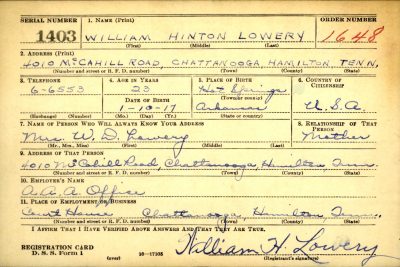 SERIAL NUMBER 1. NAME (Print) ORDER NUMBER
1403 WILLIAM HINTON LOWERY 1648
(First) (Middle) (Last)
2. ADDRESS (Print)
4010 McCAHILL ROAD, CHATTANOOGA, HAMILTON, TENN.
(Number and street or R. F. D. number) (Town) (County) (State)
3. TELEPHONE 4. AGE IN YEARS 5. PLACE OF BIRTH 6. COUNTRY OF CITIZENSHIP
6-6553 23 Hot Springs
DATE OF BIRTH (Town or county)
1-10-17 Arkansas U.S.A.
(Exchange) (Number) (Mo.) (Day) (Yr.) (State or country)
7. NAME OF PERSON WHO WILL ALWAYS KNOW YOUR ADDRESS 8. RELATIONSHIP OF THAT PERSON
Mrs. W. D. Lowery Mother
(Mr., Mrs., Miss) (First) (Middle) (Last)
9. ADDRESS OF THAT PERSON
4010 McCahill Road, Chattanooga Hamilton Tenn.
(Number and street or R. F. D. number) (Town) (County) (State)
10. EMPLOYER'S NAME
A.A.A. Office
11. PLACE OF EMPLOYMENT OR BUSINESS
Court House Chattanooga, Hamilton Tenn.
(Number and street or R. F. D. number) (Town) (County) (State)
I AFFIRM THAT I HAVE VERIFIED ABOVE ANSWERS AND THAT THEY ARE TRUE.
REGISTRATION CARD
D. S. S. Form 1 (over) 16—17105 William H. Lowery
(Registrant's signature)